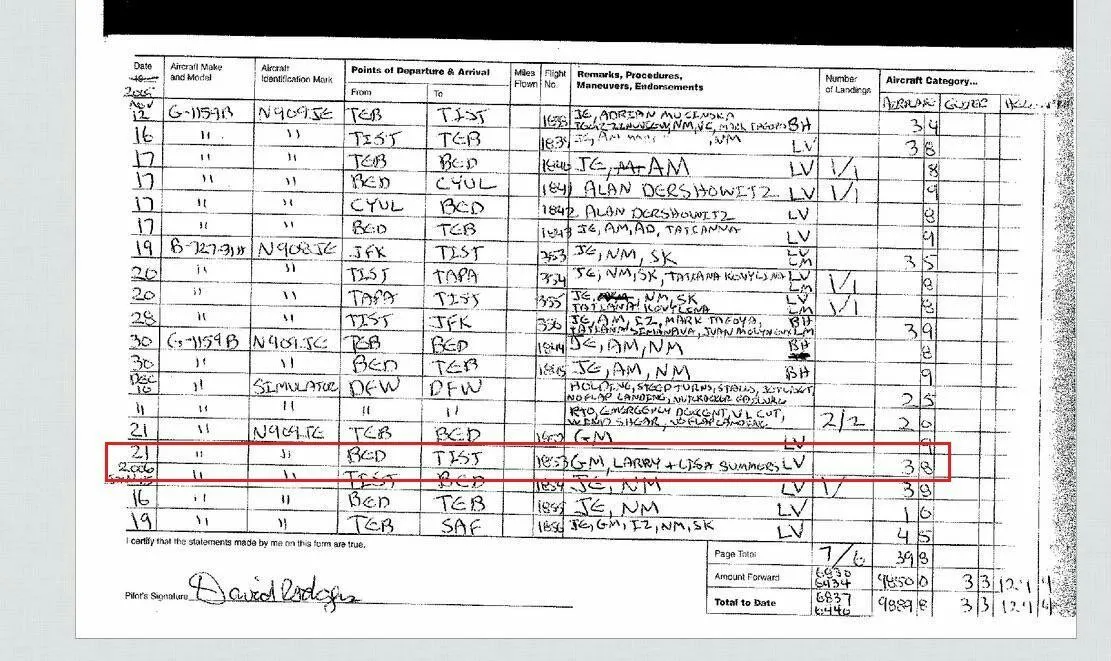 Date Aircraft Make and Model Aircraft Identification Mark Points of Departure & Arrival From To Miles Flown Flight No. Remarks, Procedures, Maneuvers, Endorsements Number of Landings Aircraft Category...
2005
NOV
12 G-1159B N909JE TEB TIST 1838 JE, ADRIAN BH 3 4
16 " " TIST TEB 1839 JE, AM NM LV 3 8
17 " " TEB BED 1840 JE, AM LV 1/1 8
17 " " BED CYUL 1841 ALAN DERSHOWITZ LV 1/1 9
17 " " CYUL BED 1842 ALAN DERSHOWITZ LV 8
17 " " BED TEB 1843 JE, AM, AD, TATIANNA LV 9
19 B-727-31H N908JE JFK TIST 353 JE, NM, SK LV LM 3 5
20 " " TIST TAPA 354 JE, NM, SK, TATIANA KOVYLINA LV LM 1/1 8
20 " " TAPA TIST 355 JE, NM, SK TATIANA KOVYLINA LV LM 1/1 8
28 " " TIST JFK 356 JE, AM, IZ, MARK TAGOYA, TATIANA BH LM 3 9
30 G-1159B N909JE TEB BED 1844 JE, AM, NM BH 8
30 " " BED TEB 1845 JE, AM, NM BH 9
DEC
10 " SIMULATOR DFW DFW HOLDING, STEEP TURNS, STALLS, NO FLAP LANDING, 2 5
11 " " " " RTO, EMERGENCY DESCENT, V1 CUT, WIND SHEAR, NO FLAP LANDING 2/2 2 0
21 " N909JE TEB BED 1852 GM LV 9
21 " " BED TIST 1853 GM, LARRY + LISA SUMMERS LV 3 8
2006
" " TIST BED 1854 JE, NM LV 1/ 3 8
16 " " BED TEB 1855 JE, NM LV 1 0
19 " " TEB SAF 1856 JE, GM, IZ, NM, SK LV 4 5
I certify that the statements made by me on this form are true.
Page Total 7/6 39 8
Amount Forward 6830 6434 9850 0 3 3
Pilot's Signature David Rodgers
Total to Date 6837 6440 9889 8 3 3